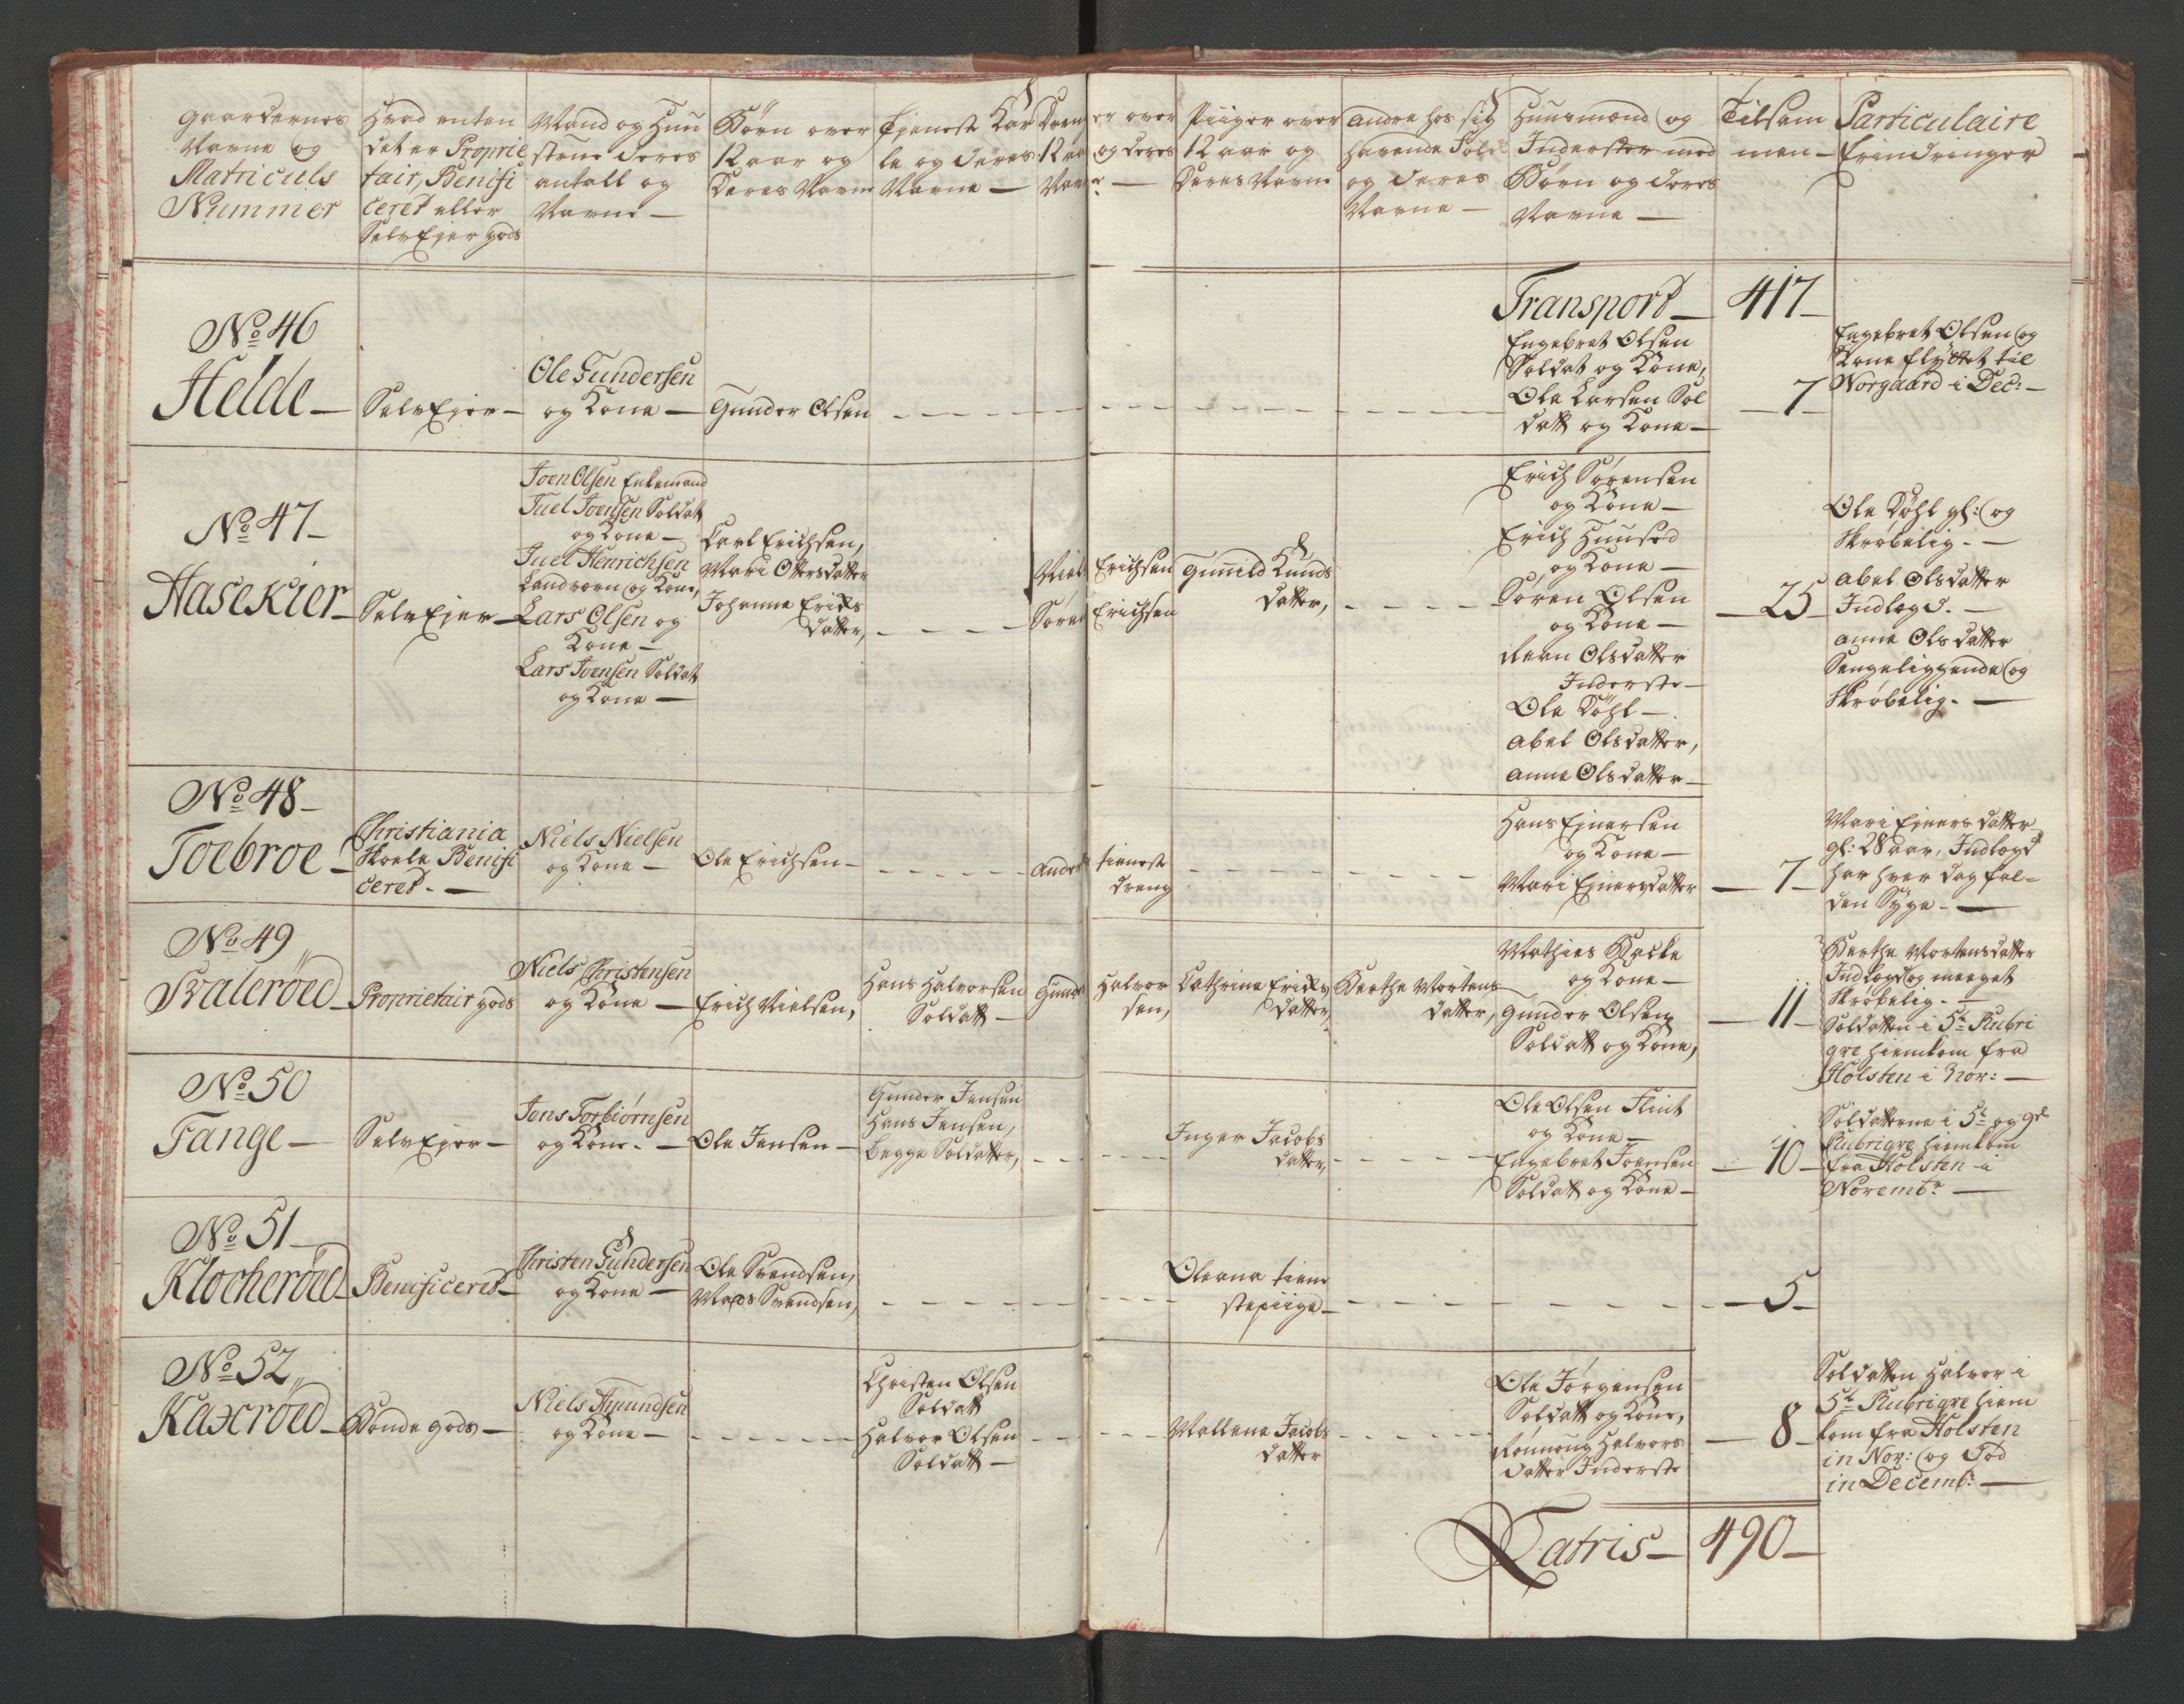 Gaardernes
Navne og
Matriculs
Nummer
Hvad enten
det er Proprie
tair, Benifi
ceret eller
SelvEjer gods
Mand og Huu
stroe deres
antall og
Navne —
Børn over
12 aar og
Deres Navne
Tjeneste Kar
le og deres
Navne —
Drenger over
12 aar og deres
Navne —
Piiger over
12 aar og
Deres Navne
Andre hos sig
havende Folk
og deres
Navne —
Huusmænd og
Inderster med
Børn og deres
Navne —
Tilsam
men —
Particulaire
Erindringer
Transport — 417 —
No 46
Helde —
SelvEjer —
Ole Gundersen
og Kone —
Gunder Olsen
Engebret Olsen
Soldat og Kone,
Ole Larsen Sol
datt og Kone —
7
Engebret Olsen og
Kone flyttet til
Norgaard i Dec: —
No 47 —
Hasekier —
SelvEjer —
Joen Olsen Enkemand
Juel Joensen Soldatt
og Kone —
Juel Henrichsen
Landværn og Kone,
Lars Olsen og
Kone —
Lars Joensen Soldat
og Kone —
Carl Erichsen,
Mari Ottersdatter
Johanne Erichs
datter,
Niels Erichsen
Søren Erichsen
Gunild Knuds
datter,
Erich Sørensen
og Kone —
Erich Huusod
og Kone —
Søren Olsen
og Kone —
Olsdatter
Inderste —
Ole Døhl —
Abel Olsdatter,
Anne Olsdatter —
25
Ole Døhl gl: og
Skrøbelig. —
Abel Olsdatter
Indlægd. —
Anne Olsdatter
Sengeliggende og
Skrøbelig. —
No 48 —
Toebroe —
Christiania
Skoele Benifi
ceret. —
Niels Nielsen
og Kone —
Ole Erichsen —
Anders tieneste
dreng
Hans Ejnersen
og Kone —
Mari Ejnersdatter
7
Mari Ejners datter
gl: 28 aar, Indlægd
har hver dag fal-
den Syge. —
No 49
Baleröed —
Proprietair gods
Niels Christensen
og Kone —
Erich Nielsen,
Hans Halvorsen
Soldatt —
Gunder Halvor
sen,
Cathrine Erichs
datter,
Berthe Mortens
datter,
Mathies Backe
og Kone —
Gunder Olsen
Soldatt og Kone,
11
Berthe Mortensdatter
Indlægd og meeget
Skrøbelig. —
Soldatten i 5te Rubri
qve hiemkom fra
Holsten i Nov: —
No 50
Tange —
SelvEjer —
Jens Torbiørnsen
og Kone. —
Ole Jensen —
Gunder Jensen
Hans Jensen,
begge Soldatter,
Inger Jacobs
datter,
Ole Olsen Flint
og Kone —
Engebret Joensen
Soldatt og Kone —
10
Soldatterne i 5te og 9de
Rubriqve hiemkom
fra Holsten i
Novembr —
No 51 —
Klocheröed —
Benificeret —
Christen Gundersen
og Kone —
Ole Svendsen,
Mads Svendsen,
Oleana tiene
stepiige —
5
No 52
Kaxröed —
Bonde gods —
Niels Amundsen
og Kone —
Christen Olsen
Soldatt
Halvor Olsen
Soldatt —
Mallene Jacobs
datter
Ole Jørgensen
Soldatt og Kone,
Rønnoug Halvors
datter Inderste
8
Soldatten Halvor i
5te Rubriqve hiem
kom fra Holsten
in Nov: og Død
in Decemb: —
Latris — 490 —